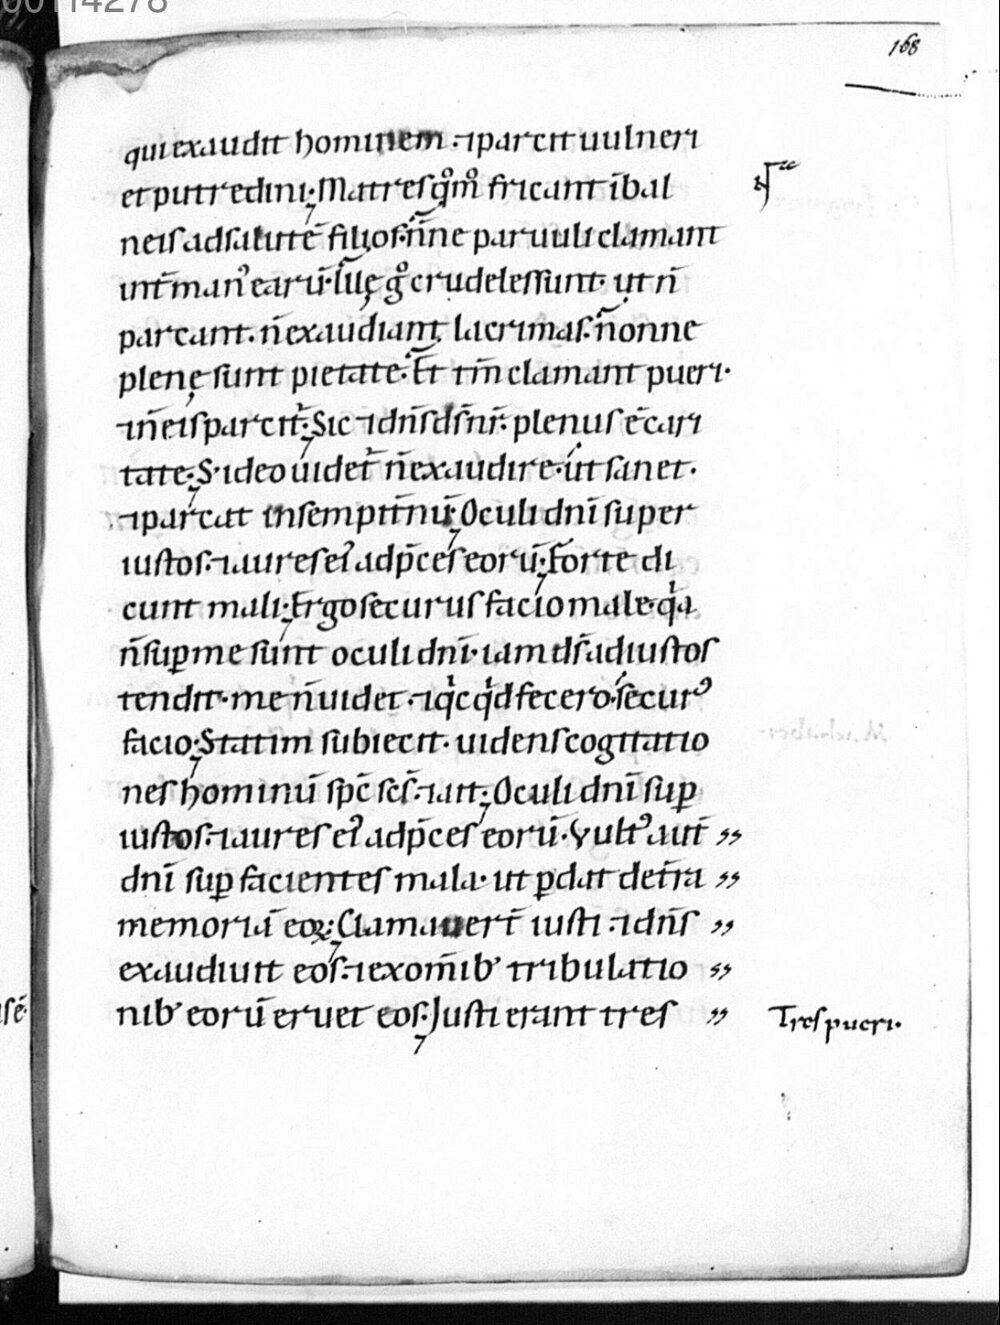 00114278
168
qui exaudit hominem .⁊parcit uulneri
et putredini; Matres qͦmͦ fricant ı̄ bal
neis ad salutē filios. ñne paruuli clamant
int̄ man᾽ earū. Ille gͦ crudeles sunt. ut ñ
parcant. ñ exaudiant lacrimas. ñonne
plenę sunt pietate. Et tm̄ clamant pueri.
⁊ ñ eis parcit᷑; Sic ⁊ dn̄s ds̄ nr̄. plenus ē cari
tate; S. ideo uidet᷑ ñ exaudire. ut sanet.
⁊parcat in sempit̄nū; Oculi dn̄i super
iustos. ⁊ aures ei᾽ ad p̄ces eorū; Forte di
cunt mali; Ergo securus facio male. qͥa
ñ sup me sunt oculi dn̄i. iam ds̄ ad iustos
tendit. me ñ uidet .⁊ qͥcqͥd fecero. secur᾽
facio; Statim subiecit. uidens cogitatio
nes hominū sp̄c sc̄s. ⁊ ait; Oculi dn̄i sup
iustos. ⁊ aures ei᾽ ad p̄ces eorū. Vult᾽ aut̄ ,,
dn̄i sup facientes mala. ut ꝑdat de t̄ra ,,
memoriā eoꝝ; Clamauer̄t iusti .⁊ dn̄s ,,
exaudiuit eos. ⁊ ex om̄ib᾽ tribulatio ,,
nib᾽ eorū eruet eos; Iusti erant tres ,,
Tres pueri.